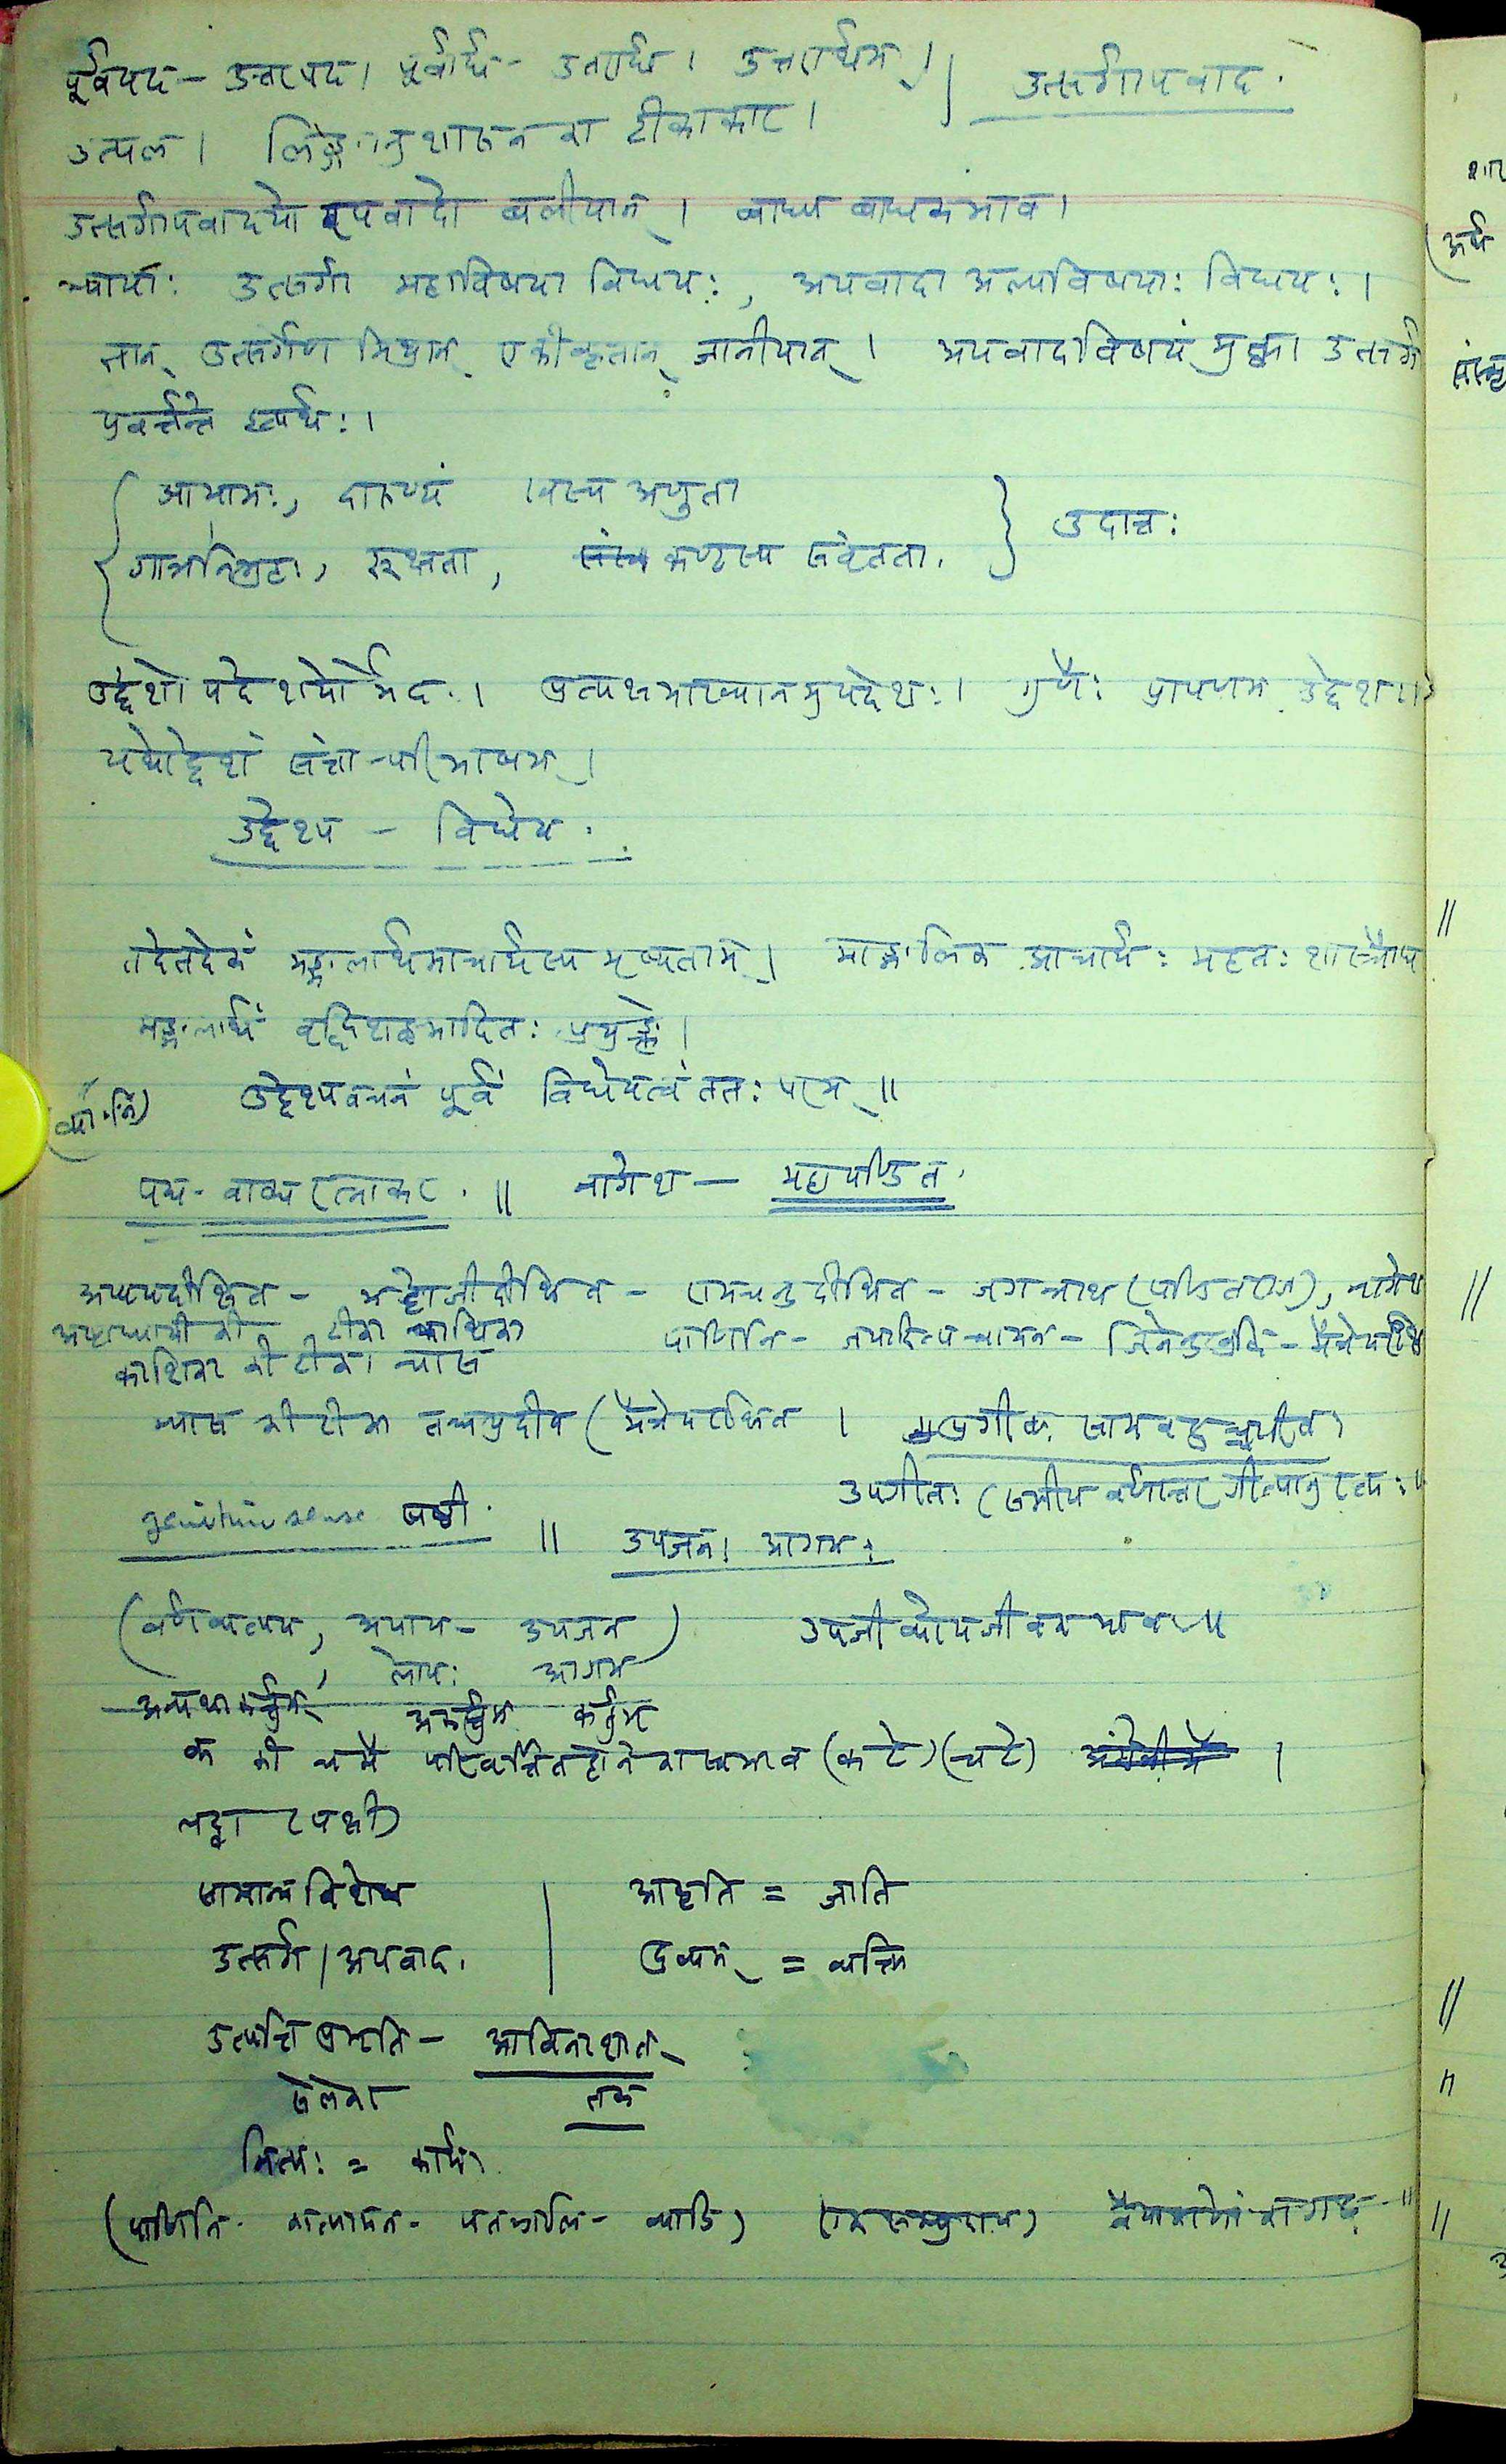 पूर्वपद - उत्तरपद। पूर्वार्ध - उत्तरार्ध। उत्तरार्धम्। || उत्सर्गापवाद.
उत्पल। लिङ्गानुशासन का टीकाकार।
उत्सर्गापवादयोरपवादो बलीयान्। बाध्य बाधकभाव।
न्यायाः उत्सर्गा महाविषया विधयः, अपवादा अल्पविषयाः विधयः।
तान् उत्सर्गेण मिश्रान् एकीकृतान् जानीयात्। अपवादविषयं मुक्त्वा उत्सर्गाः
प्रवर्त्तन्ते इत्यर्थः।
आयामः, दारुण्यं खस्य अणुता
गात्रनिग्रहः, रूक्षता, कण्ठस्य संवृतता. } उदात्तः
उद्देशोपदेशयोर्भेदः। प्रत्यक्षमाख्यानमुपदेशः। गुणैः प्रापणम् उद्देशः।
यथोद्देशं संज्ञा-परिभाषम्।
उद्देश्य - विधेय.
तदेतदेकं मङ्गलार्थमाचार्यस्य मृष्यताम्। माङ्गलिक आचार्यः महतः शास्त्रौघ
मङ्गलार्थं वृद्धिशब्दमादितः प्रयुङ्क्ते।
उद्देश्यवचनं पूर्वं विधेयत्वं ततः परम्॥
पद - वाक्य रत्नाकर. || नागेश — महापण्डित.
अप्पयदीक्षित - भट्टोजीदीक्षित - रामचन्द्र दीक्षित - जगन्नाथ (पण्डितराज), नागेश
अष्टाध्यायी की टीका काशिका पाणिनि - जयादित्य वामन - जिनेन्द्रबुद्धि - मैत्रेयरक्षित
काशिका की टीका न्यास
न्यास की टीका तन्त्रप्रदीप (मैत्रेयरक्षित।
उपगीतः
genitive sense षष्ठी. || उपजनः आगमः
(वर्णव्यत्यय, अपाय - उपजन) उपजीव्योपजीवक भाव॥
, लोपः आगम
अन्यथाकर्तुम् अकर्तुम् कर्तुम्
क की च मै परिवर्त्तित होने का स्वभाव (कटे) (चटे) ।
लट्वा (पक्षी)
सामान्य विशेष | आकृति = जाति
उत्सर्ग / अपवाद. | द्रव्यम् = व्यक्ति
उत्पत्ति प्रभृति - आविनाशात्
से लेकर तक
नित्यः = कार्यः
(पाणिनि - कात्यायन - पतञ्जलि - व्याडि)